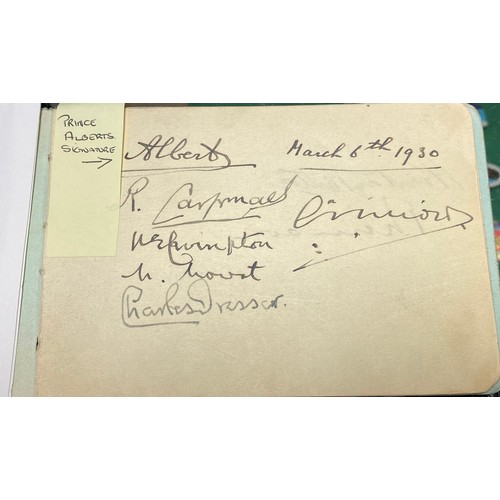 PRINCE
ALBERTS
SIGNATURE
Albert March 6th 1930
R. Carpmael
Crompton
M. Mowat
Charles Dresser.